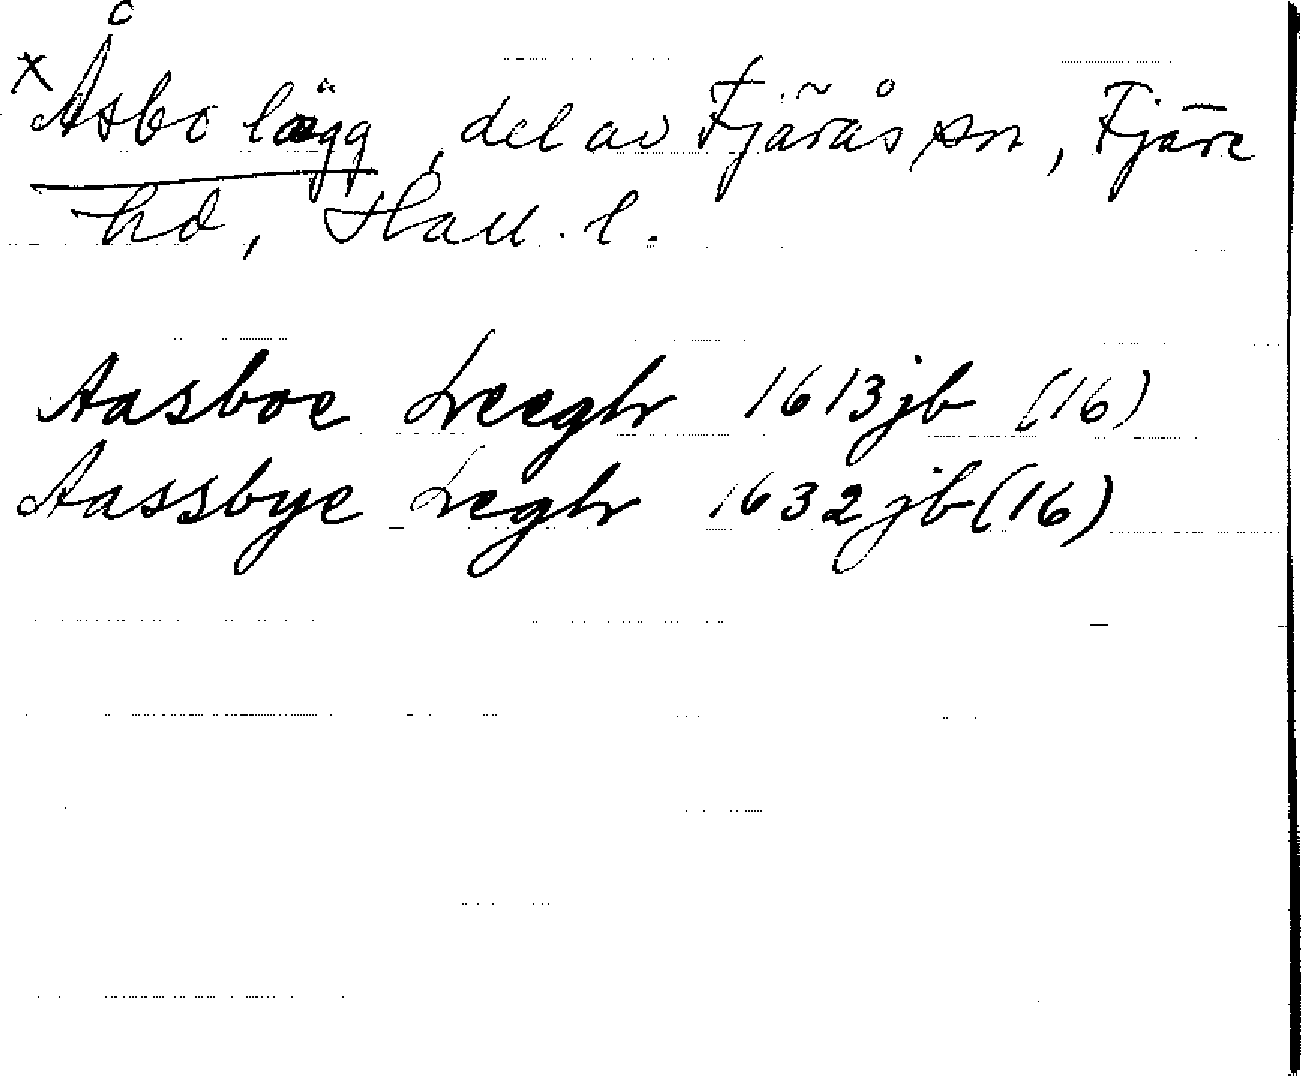 x Åsbo lägg, del av Fjärås sn, Fjäre
hd, Hall. l.
Aasboe Leegh 1613 jb (16)
Aassbye Legh 1632 jb (16)